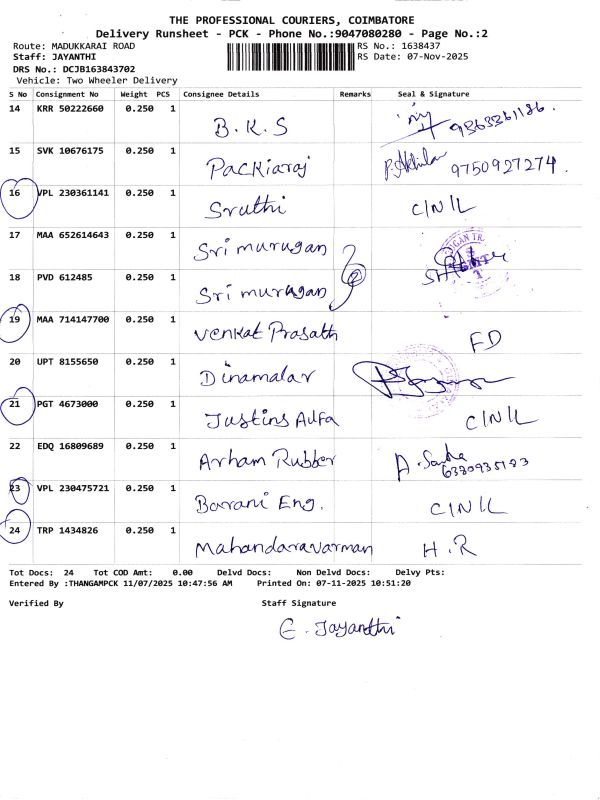 THE PROFESSIONAL COURIERS, COIMBATORE
Delivery Runsheet - PCK - Phone No.:9047080280 - Page No.:2
Route: MADUKKARAI ROAD RS No.: 1638437
Staff: JAYANTHI RS Date: 07-Nov-2025
DRS No.: DCJB163843702
Vehicle: Two Wheeler Delivery
S No Consignment No Weight PCS Consignee Details Remarks Seal & Signature
14 KRR 50222660 0.250 1 B.K.S 9363361186.
15 SVK 10676175 0.250 1 Packiaraj P. Akhila 9750927274.
16 VPL 230361141 0.250 1 Sruthi C/N IL
17 MAA 652614643 0.250 1 Sri murugan
18 PVD 612485 0.250 1 Sri murugan
19 MAA 714147700 0.250 1 Venkat Prasath FD
20 UPT 8155650 0.250 1 Dinamalar
21 PGT 4673000 0.250 1 Justins Aufa C/N IL
22 EDQ 16809689 0.250 1 Arham Rubber A. 6380935183
23 VPL 230475721 0.250 1 Barani Eng. C/N IL
24 TRP 1434826 0.250 1 Mahandaravarman H.R
Tot Docs: 24 Tot COD Amt: 0.00 Delvd Docs: Non Delvd Docs: Delvy Pts:
Entered By :THANGAMPCK 11/07/2025 10:47:56 AM Printed On: 07-11-2025 10:51:20
Verified By Staff Signature
E. Jayandhi